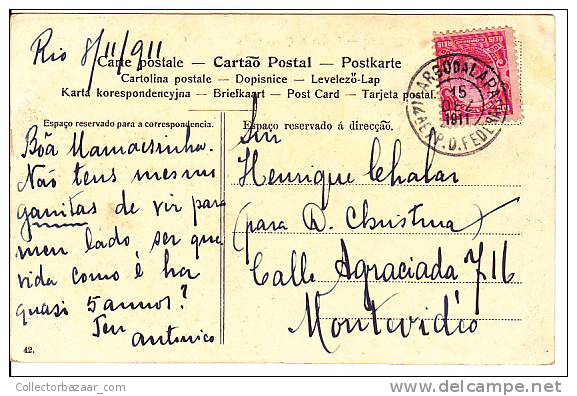 Rio 8/11/911
Carte postale — Cartão Postal — Postkarte
Cartolina postale — Dopisnice — Levelező-Lap
Karta korespondencyjna — Briefkaart — Post Card — Tarjeta postal.
REIS REIS
LARGO DA LAPA
15
DEZ
1911
D. FEDERAL
Espaço reservado para a correspondencia.
Bôa Mamaesinha.
Não tens mesmo
ganitas de vir para
meu lado, ser que
vida como é ha
quasi 5 annos?
Teu
Antonico
Espaço reservado á direcção.
Snr
Henrique Chalar
(para D. Christina)
Calle Agraciada 716
Montevidéo
42.
CollectorBazaar_com
delcampe.net